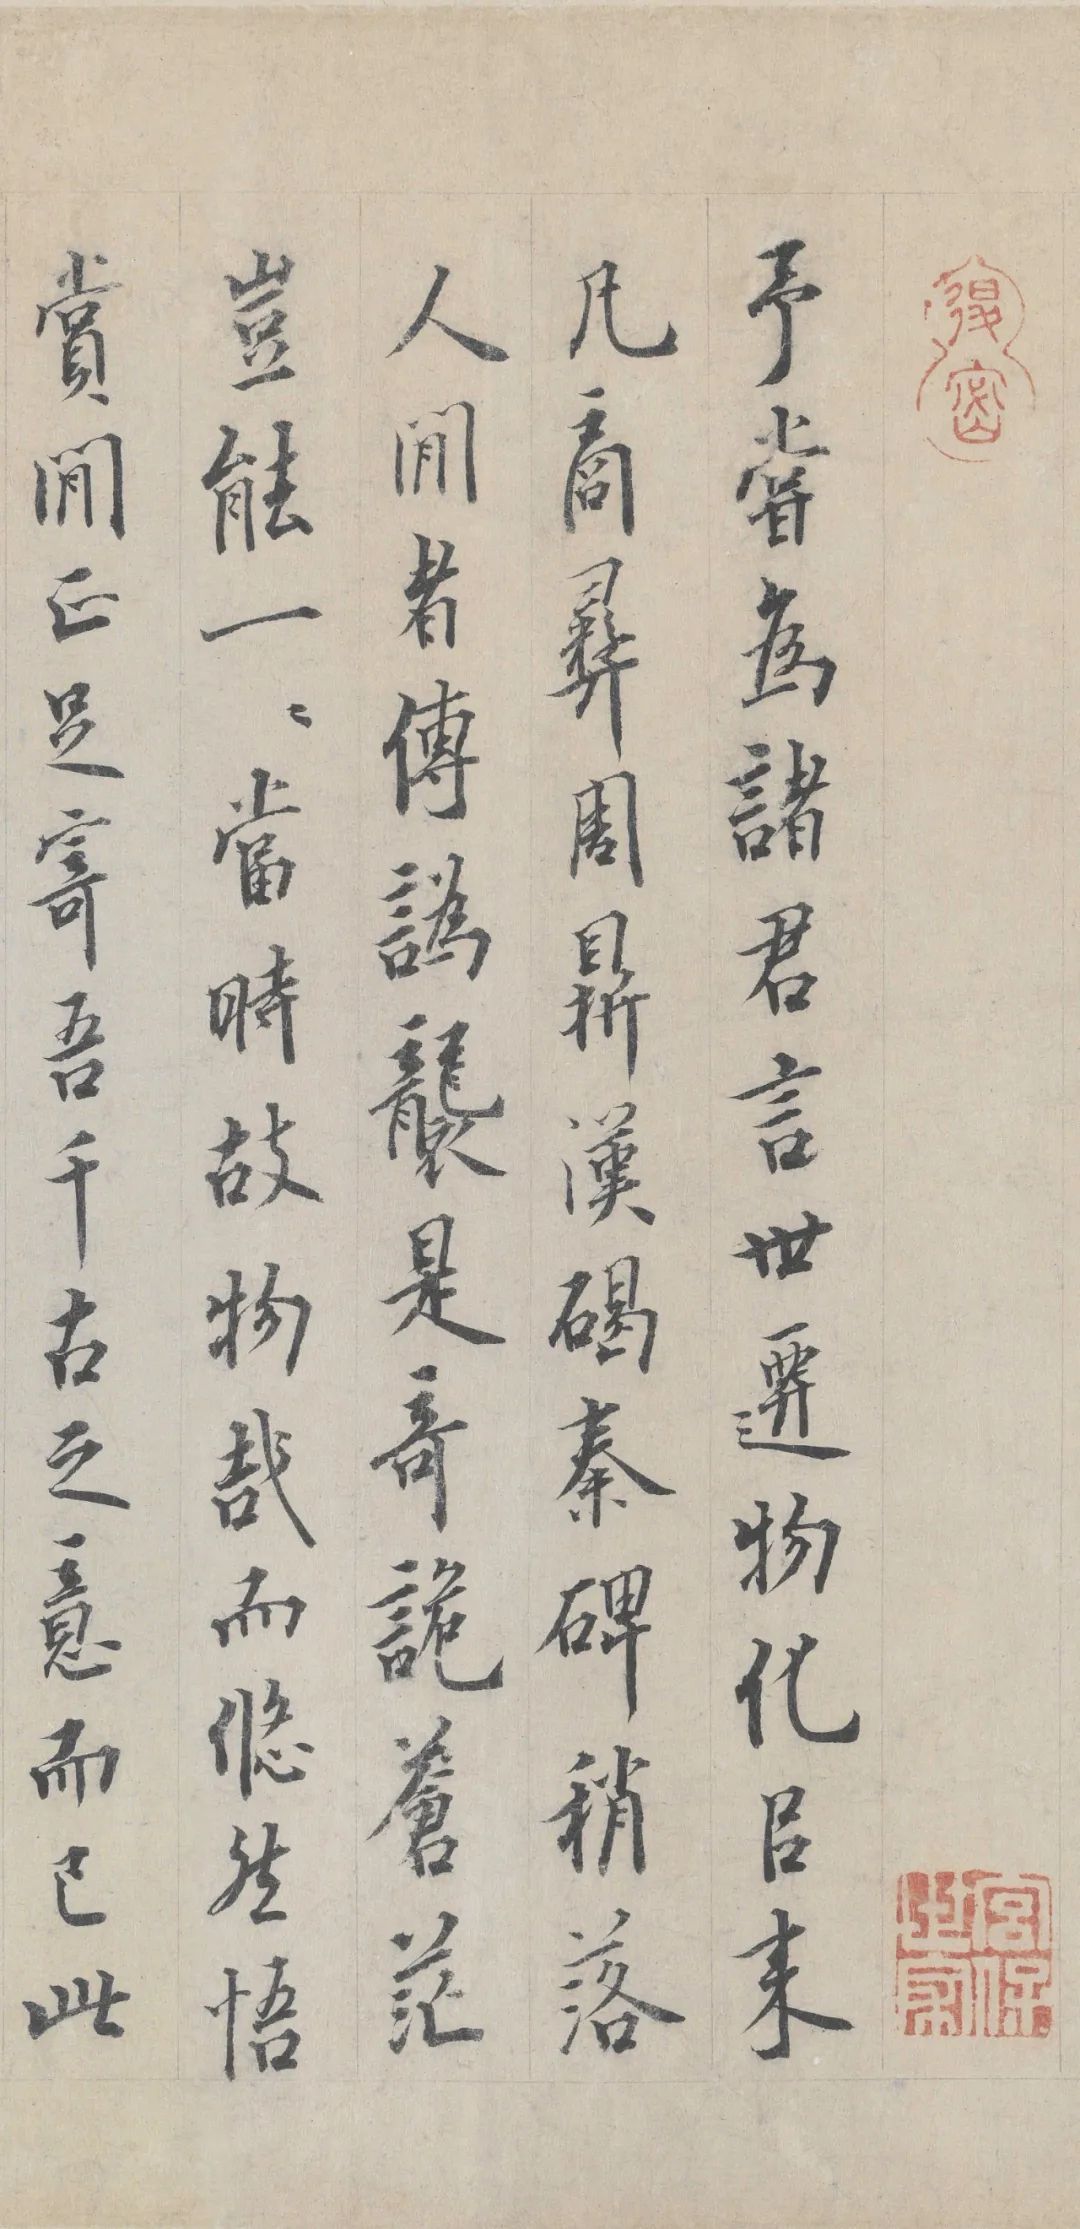 予嘗為諸君言世遷物化㠯来
凡商彝周鼎漢碣秦碑稍落
人間者傳譌襲是奇詭蒼茫
豈能一、當時故物哉而悠然悟
賞間正足寄吾千古之意而已此